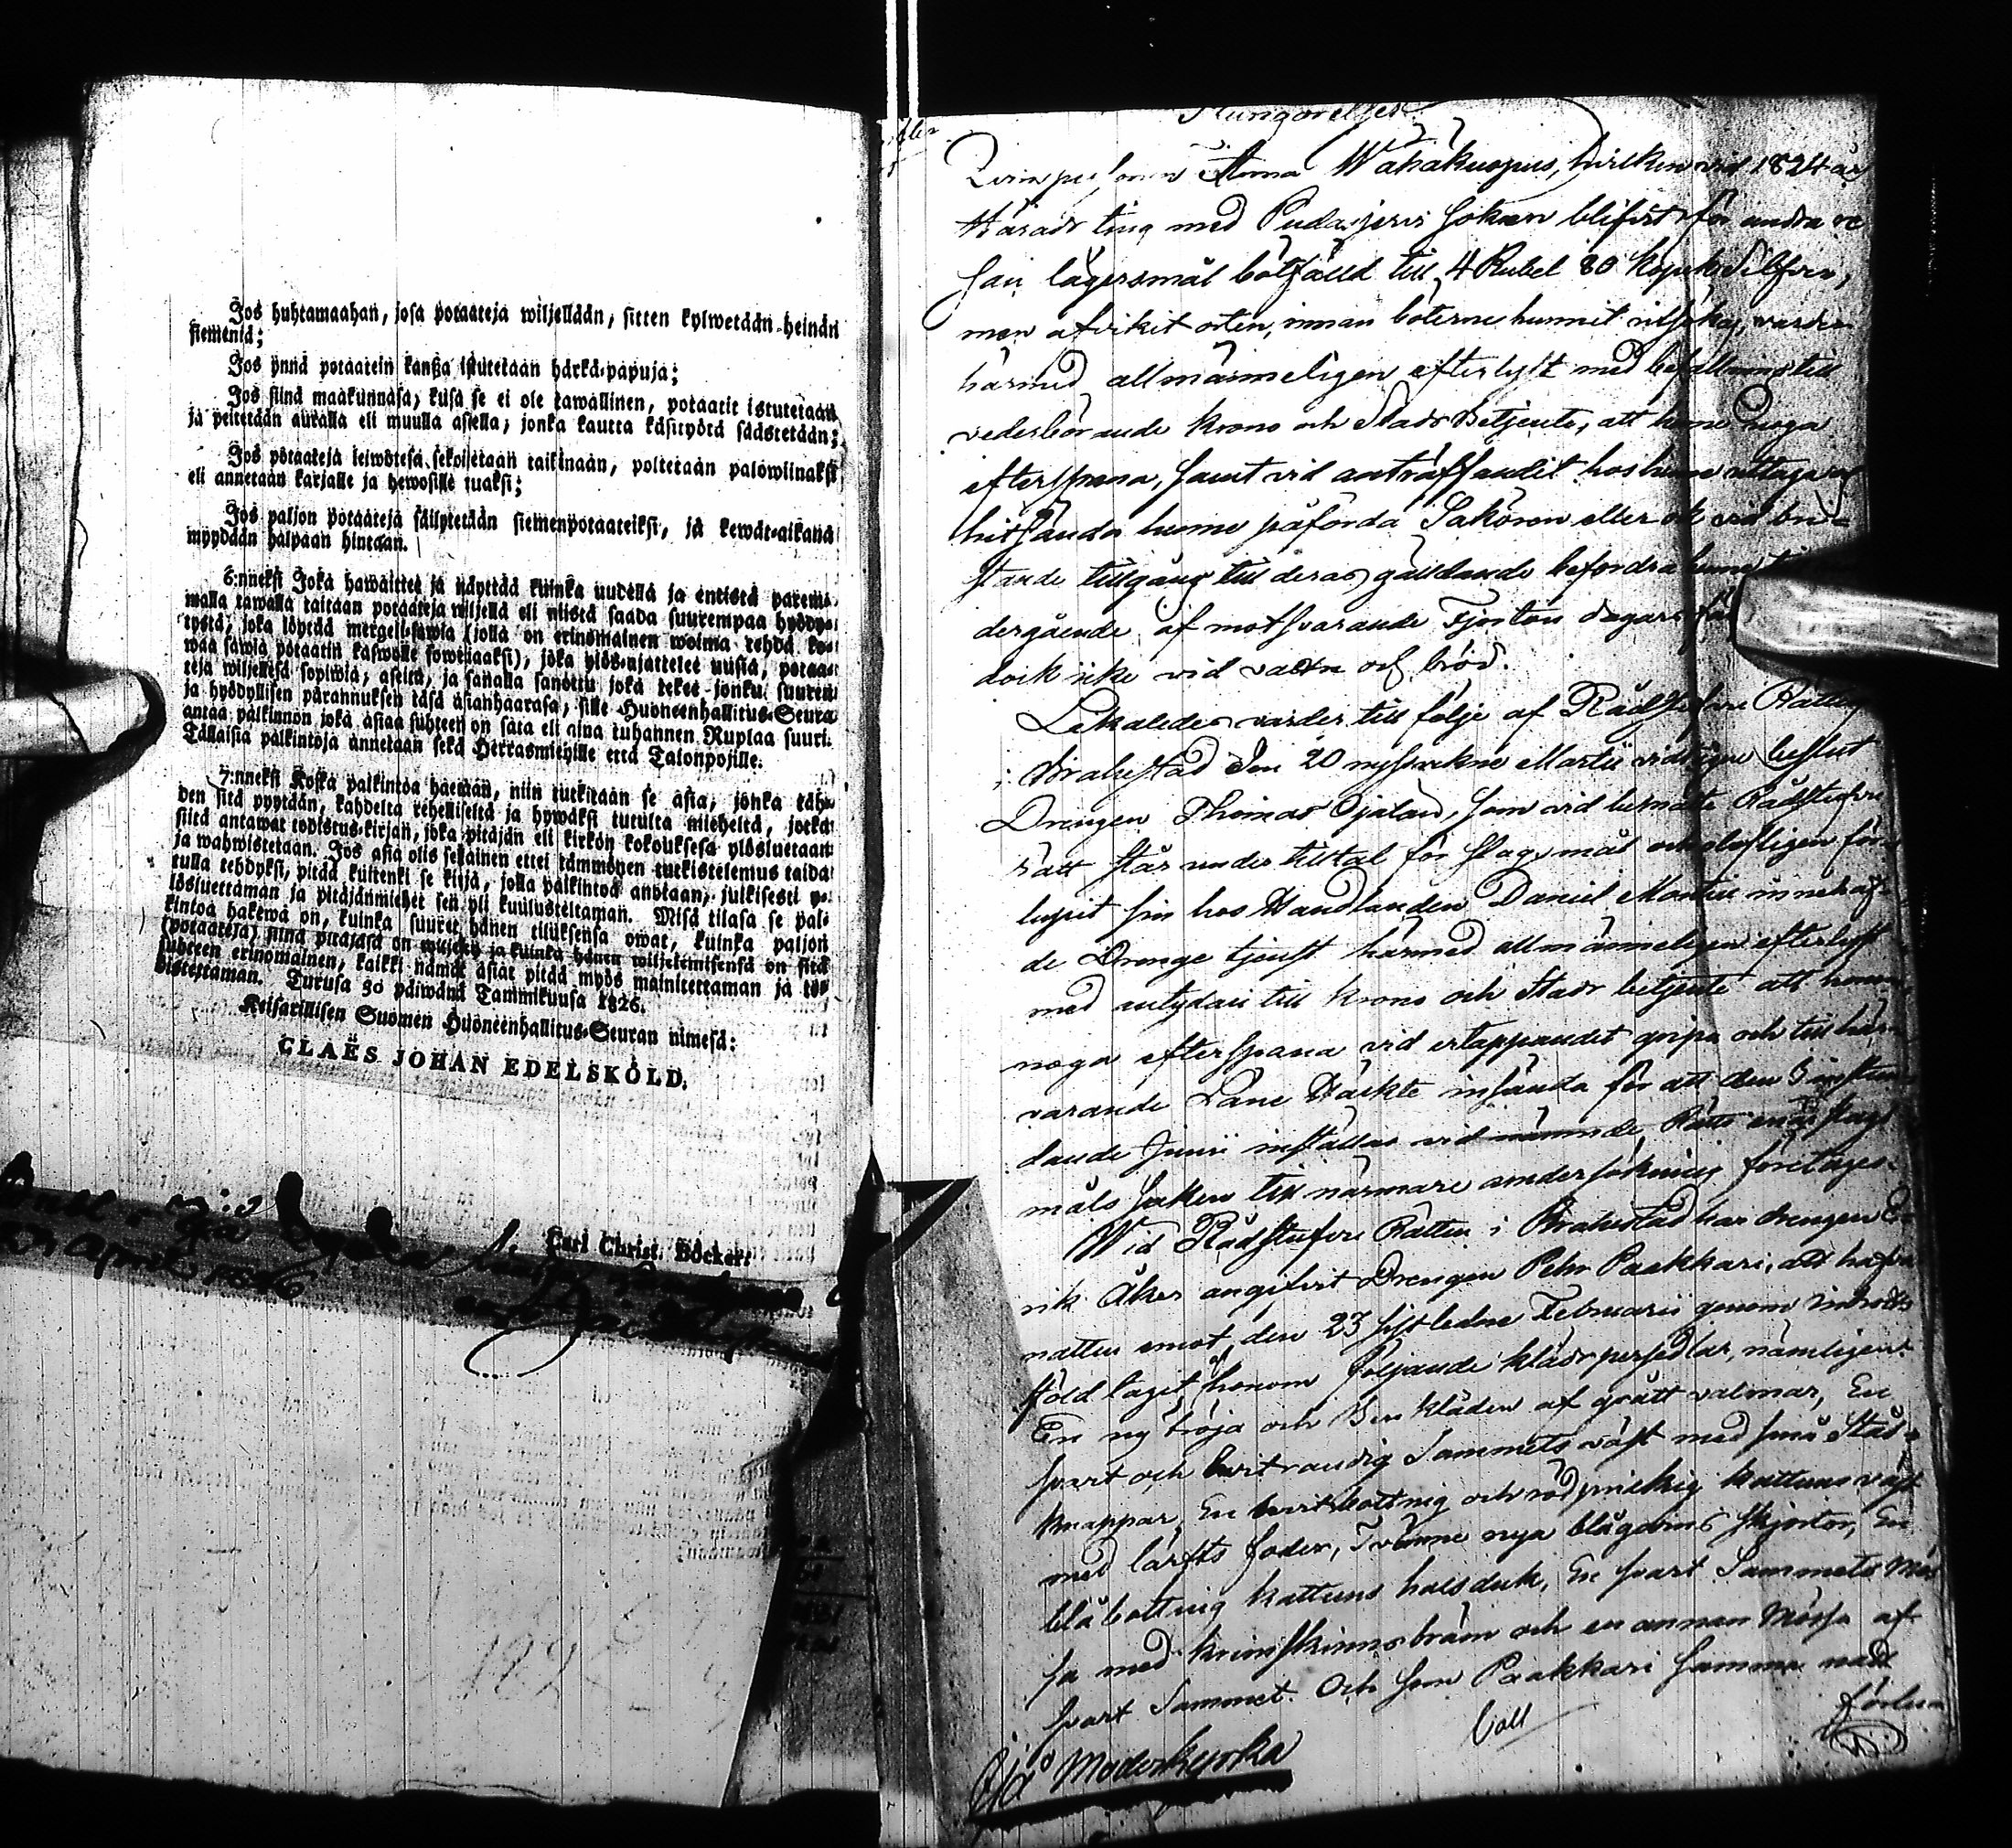 Jos huhtamaahan, josa potaateja wiljellään, sitten kylwetään heinän
siemeniä;
Jos ynnä potaatein kanßa istutetaan härkä-papuja;
Jos siinä maakunnasa, kusa se ei ole tawallinen, potaatit istutetaan
ja peitetään auralla eli muulla asella, jonka kautta käsityötä säästetään;
Jos potaateja leiwotesa sekoitetaan taikinaan, poltetaan palowiinaksi
eli annetaan karjalle ja hewosille ruaksi;
Jos paljon potaateja säilytetään siemenpotaateiksi, ja kewät-aikana
myydään halpaan hintaan.
6:nneksi Joka hawaittee ja näyttää kuinka uudella ja entistä parem-
malla tawalla taitaan potaateja wiljellä eli niistä saada suurempaa hyödy-
tystä, joka löytää mergeli-sawia (jolla on erinomainen woima tehdä ko-
waa sawia potaatin kaswolle soweliaaksi), joka ylös-ajattelee uusia, potaa-
teja wiljellesä sopiwia, aseita, ja sanalla sanottu joka tekee jonku suuren
ja hyödyllisen parannuksen täsä asianhaarasa, sille Huoneenhallitus-Seura
antaa palkinnon joka asiaa suhteen on sata eli aina tuhannen Ruplaa suuri.
Tällaisia palkintoja annetaan sekä Herrasmiehille että Talonpojille.
7:nneksi Koska palkintoa haetaan, niin tutkitaan se asia, jonka täh-
den sitä pyytään, kahdelta rehelliseltä ja hywäksi tutulta mieheltä, jotka
siitä antawat todistus-kirjan, joka pitäjän eli kirkon kokouksesa ylösluetaan
ja wahwistetaan. Jos asia olis sellainen ettei tämmönen tutkistelemus taida
tulla tehdyksi, pitää kuitenki se kirja, jolla palkintoa anotaan, julkisesti y-
lösluettaman ja pitäjänmiehet sen yli kuulusteltaman. Misä tilasa se pal-
kintoa hakewa on, kuinka suuret hänen tiluksensa owat, kuinka paljon
(potaateja) siinä pitäjäsä on wiljelty ja kuinka hänen wiljelemisensä on sitä
suhteen erinomainen, kaikki nämät asiat pitää myös mainitettaman ja to-
distettaman. Turusa 30 päiwänä Tammikuusa 1826.
Keisarillisen Suomen Huoneenhallitus-Seuran nimesä:
CLAËS JOHAN EDELSKÖLD.
Carl Christ. Böcker.
April 1826
182
Kungörelser
Qvinspersonen Anna Wähäkuopus, hvilken vid 1824 års
Härads ting med Pudasjervi Sokn blifvit för andra re
san lägersmål bötfälld till 4 Rubel 80 Kopek Silfver,
men afvikit orten, innan böterne hunnit utsökas, varder
härmed allmänneligen efterlyst med befallning till
vederbörande Krono och Stads Betjente, att henne noga
efterspana, samt vid anträffandet hos henne uttaga och
hitsända henne påförda Saköron eller ock vid bri-
stande tillgång till deras gäldande befordra henne till
dergående af motsvarande Fjorton dagars
dock icke vid vatn och bröd.
Likaledes varder till följe af Rådstufvu Rättens
i Brahestad den 20 nystvekne Martii vidtagne beslut
Drengen Thomas Ojalau, som vid bemälte Rådstufvu
rätt står under tilltal för slagsmål och olofligen för
lupit sin hos Handlanden Daniel Montin innehaf-
de Drenge tjenst härmed allmänneligen efterlyst
med antydan till Krono och Stads betjente att honom
noga efterspana vid ertappandet gripa och till här
varande Läne Häckte insända för att den 5 instun
dande Junii inställas vid nämnde Rätt enär slags
måls saken till närmare undersökning företages.
Wid Rådstufvu Rätten i Brahestad har drengen E-
rik Åker angifvit Drengen Pehr Paakkari, att hafva
natten emot den 23 sistledne Februarii genom inbrotts
stöld tagit honom följande klädspersedlar, nämligen:
En ny tröja och Benkläder af grått valmar, En
svart och hvit randig Sammets väst med små Stål-
knappar, En hvitbottnig och rödprickig kattuns väst
med lärfts foder, Tvänne nya blågarns skjortor, En
blåbottnig kattuns halsduk, En svart Sammets Mös
sa med krimskinns bräm och en annan Mössa af
svart Sammet. Och som Paakkari samma natt
förlu-
Ijå Moderkyrka